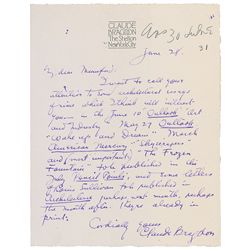 CLAUDE
BRAGDON
The Shelton
New York City
Ans 30 June
31
June 28.
My dear Mumford:
I want to call your
attention to some architectural writings
of mine which I think will interest
you — in the June 10 Outlook "Art
and Industry," May 27 Outlook
"Wake up! and Dream" — March
American Mercury "Skyscrapers"
and (most important) "The Frozen
Fountain" to be published in
July Pencil Points; and some letters
of Louis Sullivan to be published in
Architecture perhaps next month, perhaps
the month after. They're already in
print.
Cordially yours
Claude Bragdon